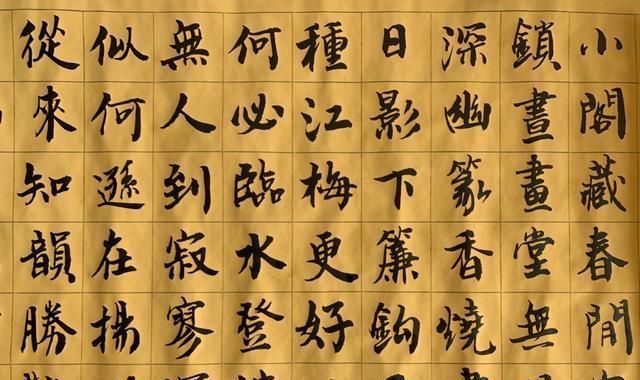 小閣藏春閒
鎖晝畫堂無
深幽篆香燒
日影下簾鉤
種江梅更好
何必臨水登
無人到寂寥
似何遜在揚
從來知韻勝